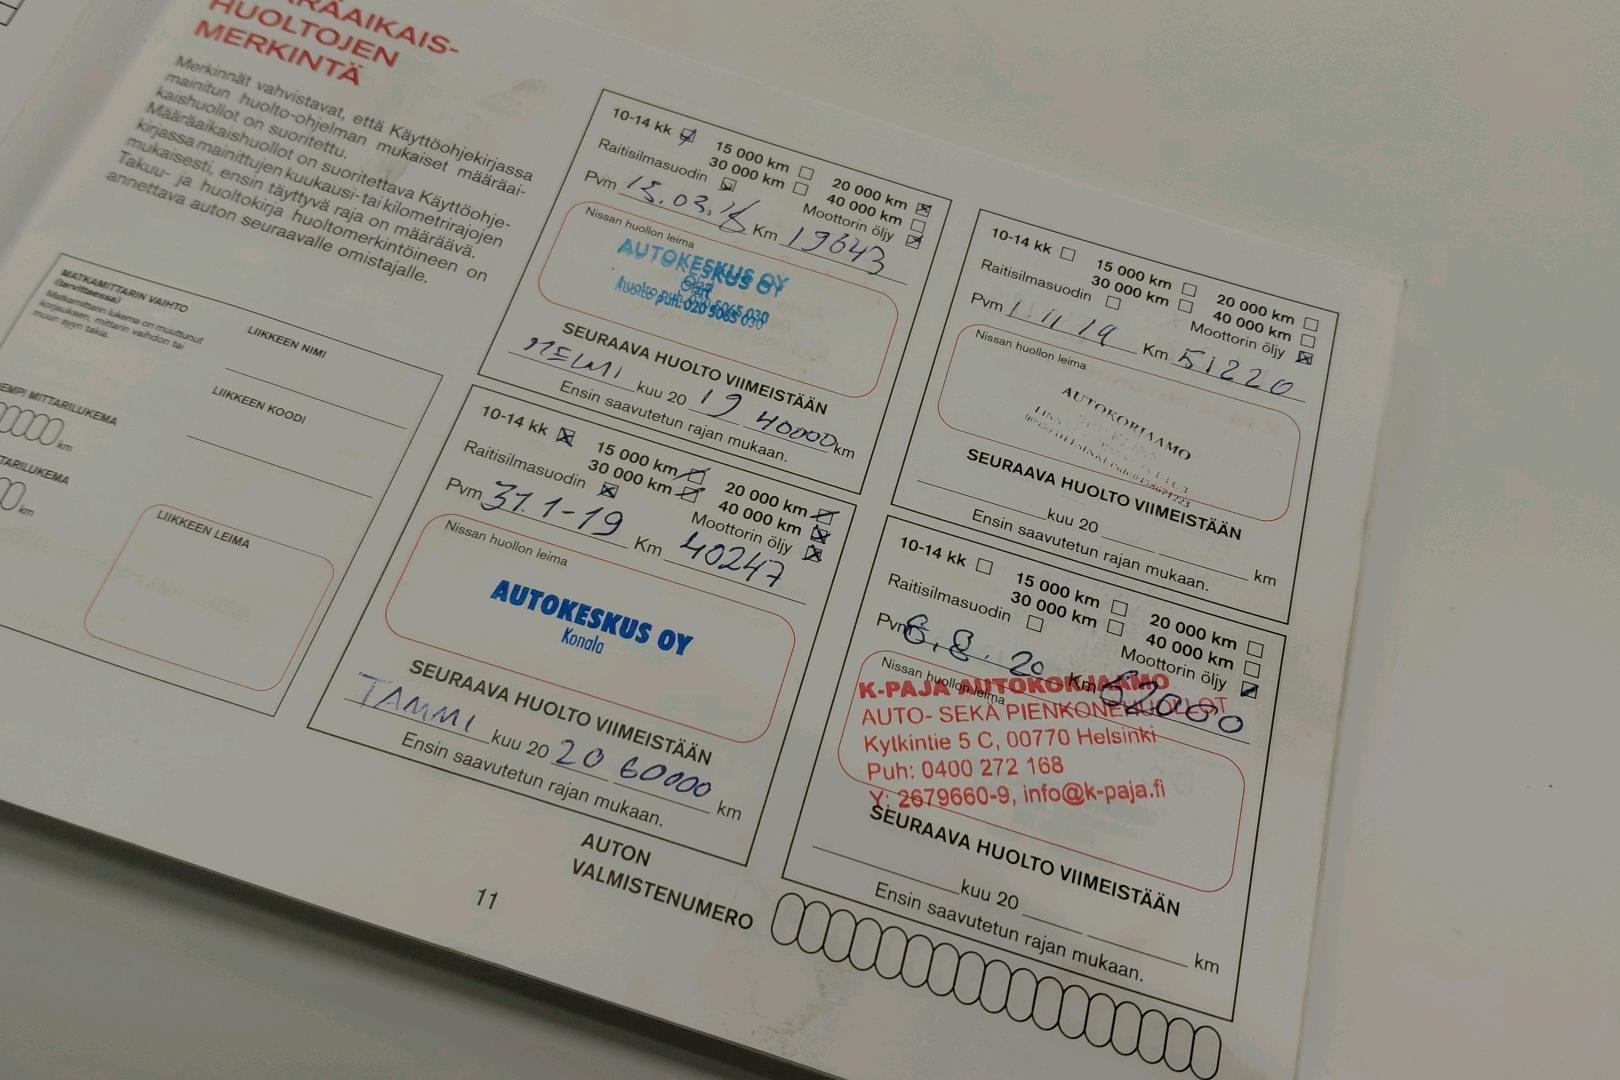 RÄAIKAIS-
HUOLTOJEN
MERKINTÄ
Merkinnät vahvistavat, että Käyttöohjekirjassa
mainitun huolto-ohjelman mukaiset määräai-
kaishuollot on suoritettu.
Määräaikaishuollot on suoritettava Käyttöohje-
kirjassa mainittujen kuukausi- tai kilometrirajojen
mukaisesti, ensin täyttyvä raja on määräävä.
Takuu- ja huoltokirja huoltomerkintöineen on
annettava auton seuraavalle omistajalle.
MATKAMITTARIN VAIHTO
(tarvittaessa)
Matkamittarin lukema on muuttunut
korjauksen, mittarin vaihdon tai
muun syyn takia.
LIIKKEEN NIMI
LIIKKEEN KOODI
EMPI MITTARILUKEMA
km
TARILUKEMA
km
LIIKKEEN LEIMA
10-14 kk
15 000 km
20 000 km
30 000 km
40 000 km
Raitisilmasuodin
Moottorin öljy
Pvm 15.03.18 Km 19643
Nissan huollon leima
AUTOKESKUS OY
Olari
huolto puh. 020 5065 030
SEURAAVA HUOLTO VIIMEISTÄÄN
HELMI kuu 20 19 40000 km
Ensin saavutetun rajan mukaan.
10-14 kk
15 000 km
20 000 km
30 000 km
40 000 km
Raitisilmasuodin
Moottorin öljy
Pvm 31.1-19 Km 40247
Nissan huollon leima
AUTOKESKUS OY
Konala
SEURAAVA HUOLTO VIIMEISTÄÄN
TAMMI kuu 20 20 60000 km
Ensin saavutetun rajan mukaan.
10-14 kk
15 000 km
20 000 km
30 000 km
40 000 km
Raitisilmasuodin
Moottorin öljy
Pvm 1.11.19 Km 51220
Nissan huollon leima
AUTOKORJAAMO
SEURAAVA HUOLTO VIIMEISTÄÄN
kuu 20 km
Ensin saavutetun rajan mukaan.
10-14 kk
15 000 km
20 000 km
30 000 km
40 000 km
Raitisilmasuodin
Moottorin öljy
Pvm 6.8.20 Km 62000
Nissan huollon leima
K-PAJA AUTOKORJAAMO
AUTO- SEKÄ PIENKONEHUOLLOT
Kytkintie 5 C, 00770 Helsinki
Puh: 0400 272 168
Y: 2679660-9, info@k-paja.fi
SEURAAVA HUOLTO VIIMEISTÄÄN
kuu 20 km
Ensin saavutetun rajan mukaan.
AUTON
VALMISTENUMERO
11